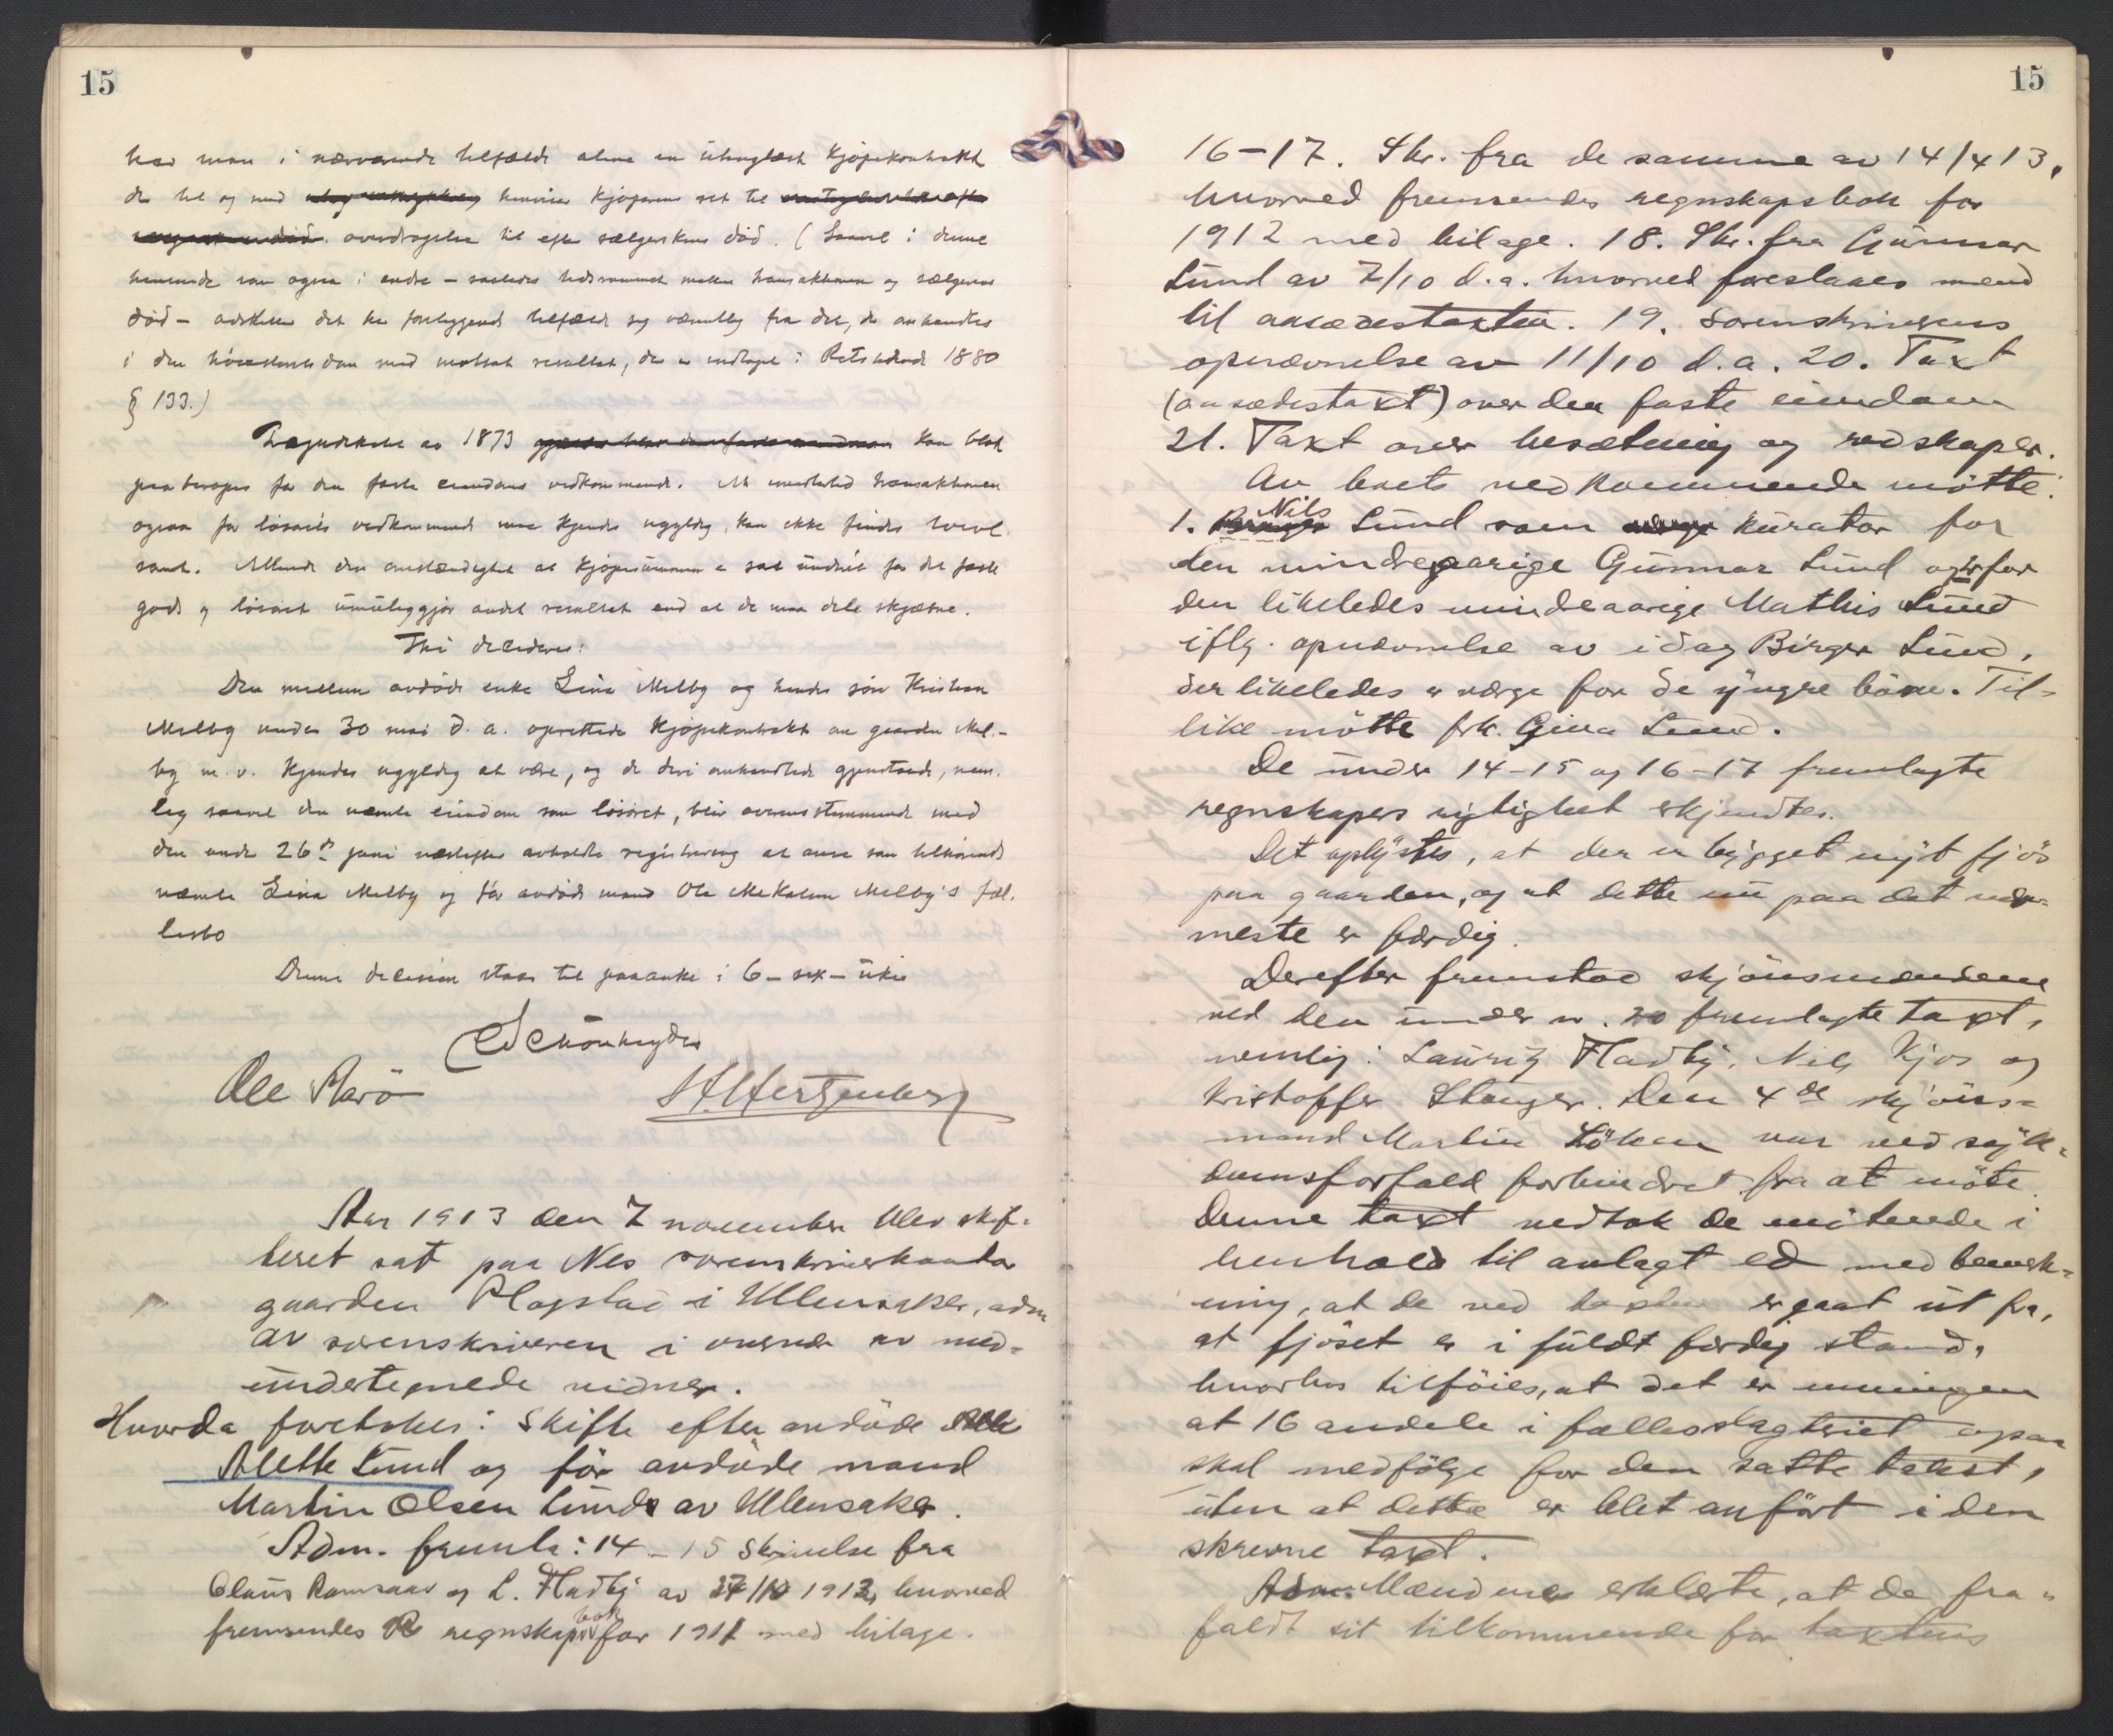 15
har man i nærværende tilfælde alene en utinglæst kjøpekontrakt
der til og med henviser kjøperens ret til
overdragelse til efter sælgerskens død. (Saavel i denne
henseende som ogsaa i andre – saaledes tidsrummet mellem transaktionen og sælgerens
død – adskiller det her foreliggende tilfælde sig væsentlig fra det, der omhandles
i den høiesteretsdom med motsat resultat, der er indtaget i Retstidende 1880
§ 133.)
av 1873 kan blot
paaberopes for den faste eiendoms vedkommende. At imidlertid transaktionen
ogsaa for løsørets vedkommende maa kjendes ugyldig, kan ikke findes tvivl-
somt. Allerede den omstændighet at kjøpesummen er sat under ett for det faste
gods og løsøret umuliggjør andet resultat end at de maa dele skjæbne.
Thi decideres:
Den mellem avdøde enke Lina Melby og hendes søn Kristian
Melby under 30 mai d. a. oprettede kjøpekontrakt om gaarden Mel-
by m. v. kjendes ugyldig at være, og de deri omhandlede gjenstande, nem-
lig saavel den nævnte eiendom som løsøret, blir overensstemmende med
den under 26de juni næstefter avholdte registrering at anse som tilhørende
nævnte Lina Melby og før avdøde mand Ole Melby's fæl-
lesbo
Denne decision staar til paaanke i 6 – sex – uker
Schönheyder
Ole Rarö H. Hertzenberg
Aar 1913 den 7 november blev skif-
teret sat paa Nes sorenskriverkontor
gaarden Ragstad i Ullensaker, adm
av sorenskriveren i overvær av med-
undertegnede vidner.
Hvorda foretokes: Skifte efter avdøde
Alette Lund og før avdøde mand
Martin Olsen Lund av Ullensaker.
Adm. fremla: 14 – 15 Skrivelse fra
Olaus Ramsaas og L. Fladby av 27/10 1912, hvorved
fremsendes regnskapsbok for 1911 med bilage.
15
16–17. Skr. fra de samme av 14/4 13,
hvorved fremsendes regnskapsbok for
1912 med bilage. 18. Skr. fra Gunnar
Lund av 7/10 d. a. hvorved foreslaaes mænd
til aasædestaxten. 19. Sorenskriverens
opnævnelse av 11/10 d. a. 20. Taxt
(aasædestaxt) over den faste eiendom
21. Taxt over besætning og redskaper.
Av boets vedkommende møtte:
1. Nils Lund som kurator for
den mindreaarige Gunnar Lund og 2. for
den likeledes mindeaarige Mathis Lund
iflg. opnævnelse av idag Birger Lund,
der likeledes er værge for de yngre børn. Til-
like møtte frk. Gina Lund.
De under 14–15 og 16–17 fremlagte
regnskapers rigtighet erkjendtes.
Det oplystes, at der er bygget nyt fjös
paa gaarden, og at dette nu paa det nær-
meste er færdig.
Derefter fremstod skjønsmændene
ved den under nr. 20 fremlagte taxt,
nemlig: Lauritz Fladby, Nils Kjos og
Kristoffer Stanger. Den 4de skjøns-
mand Martin Løken var ved syk-
domsforfald forhindret fra at møte.
Denne taxt vedtok de møtende i
henhold til avlagt ed med bemerk-
ning, at de ved taxten er gaat ut fra,
at fjøset er i fuldt færdig stand,
hvorhos tilføies, at det er meningen
at 16 andele i fællesslagteriet ogsaa
skal medfølge for den satte takst,
uten at dette er blet anført i den
skrevne taxt.
Mændene erklærte, at de fra-
faldt sit tilkommende for taxtens